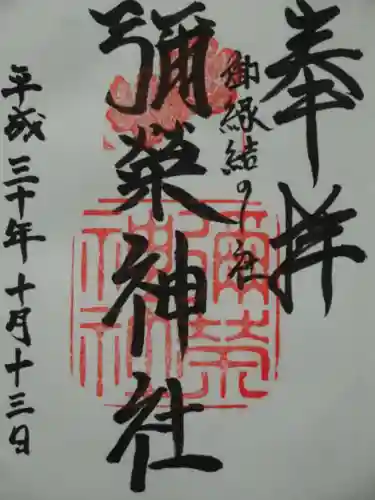 奉拝
御縁結の社
彌榮神社
平成三十年十月十三日
彌榮
神社